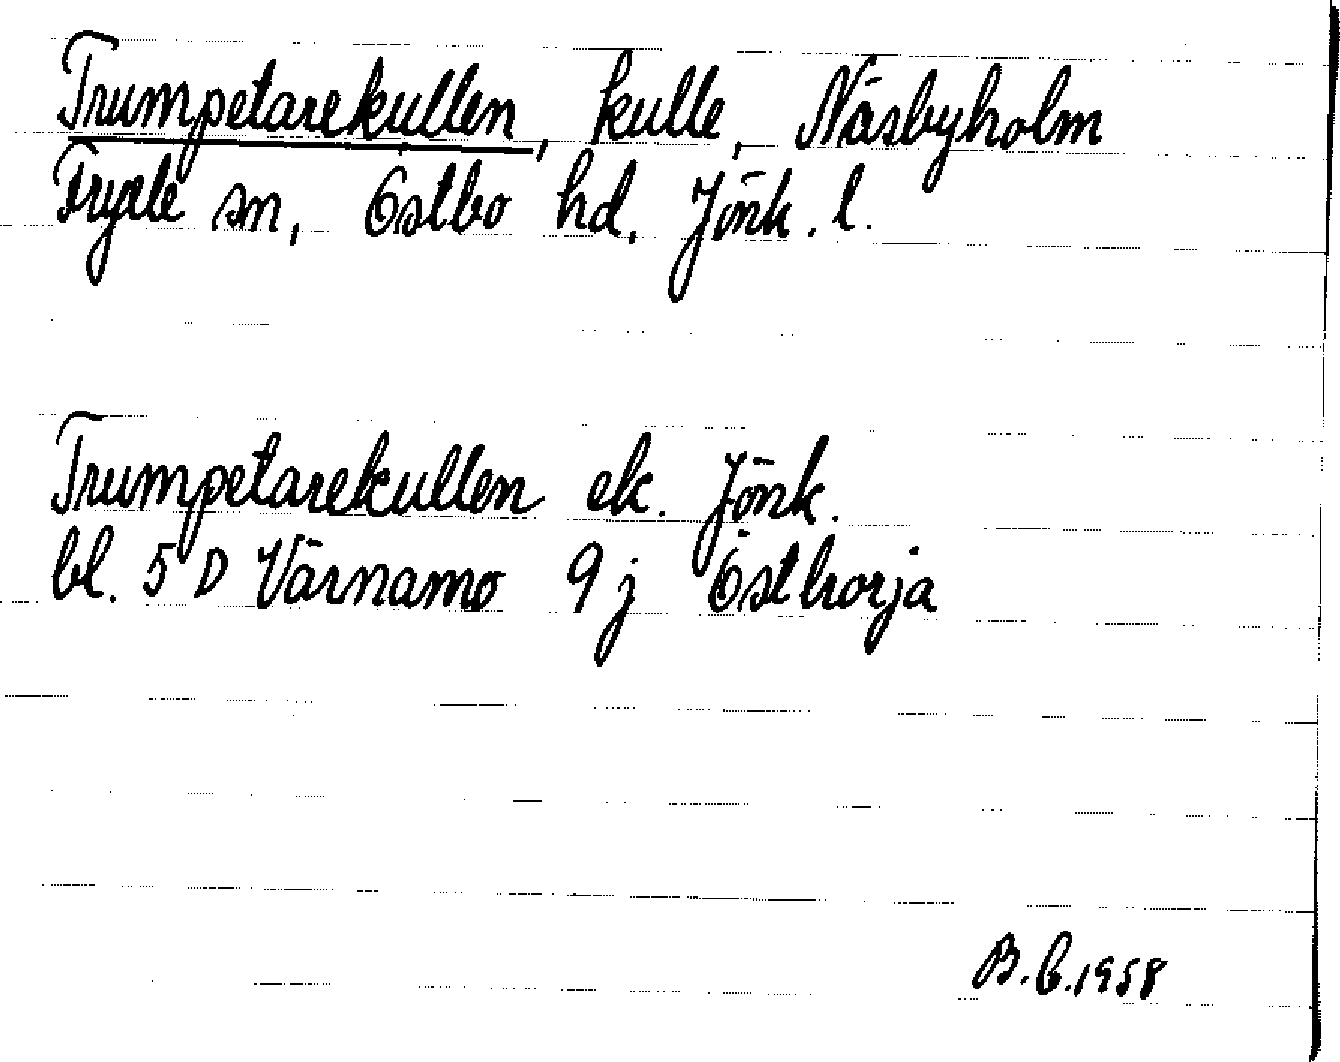 Trumpetarekullen, kulle, Näsbyholm
Fryele sn, Östbo hd, Jönk. l.
Trumpetarekullen ek. Jönk.
bl. 5 D Värnamo 9 j Östhorja
B.E.1958